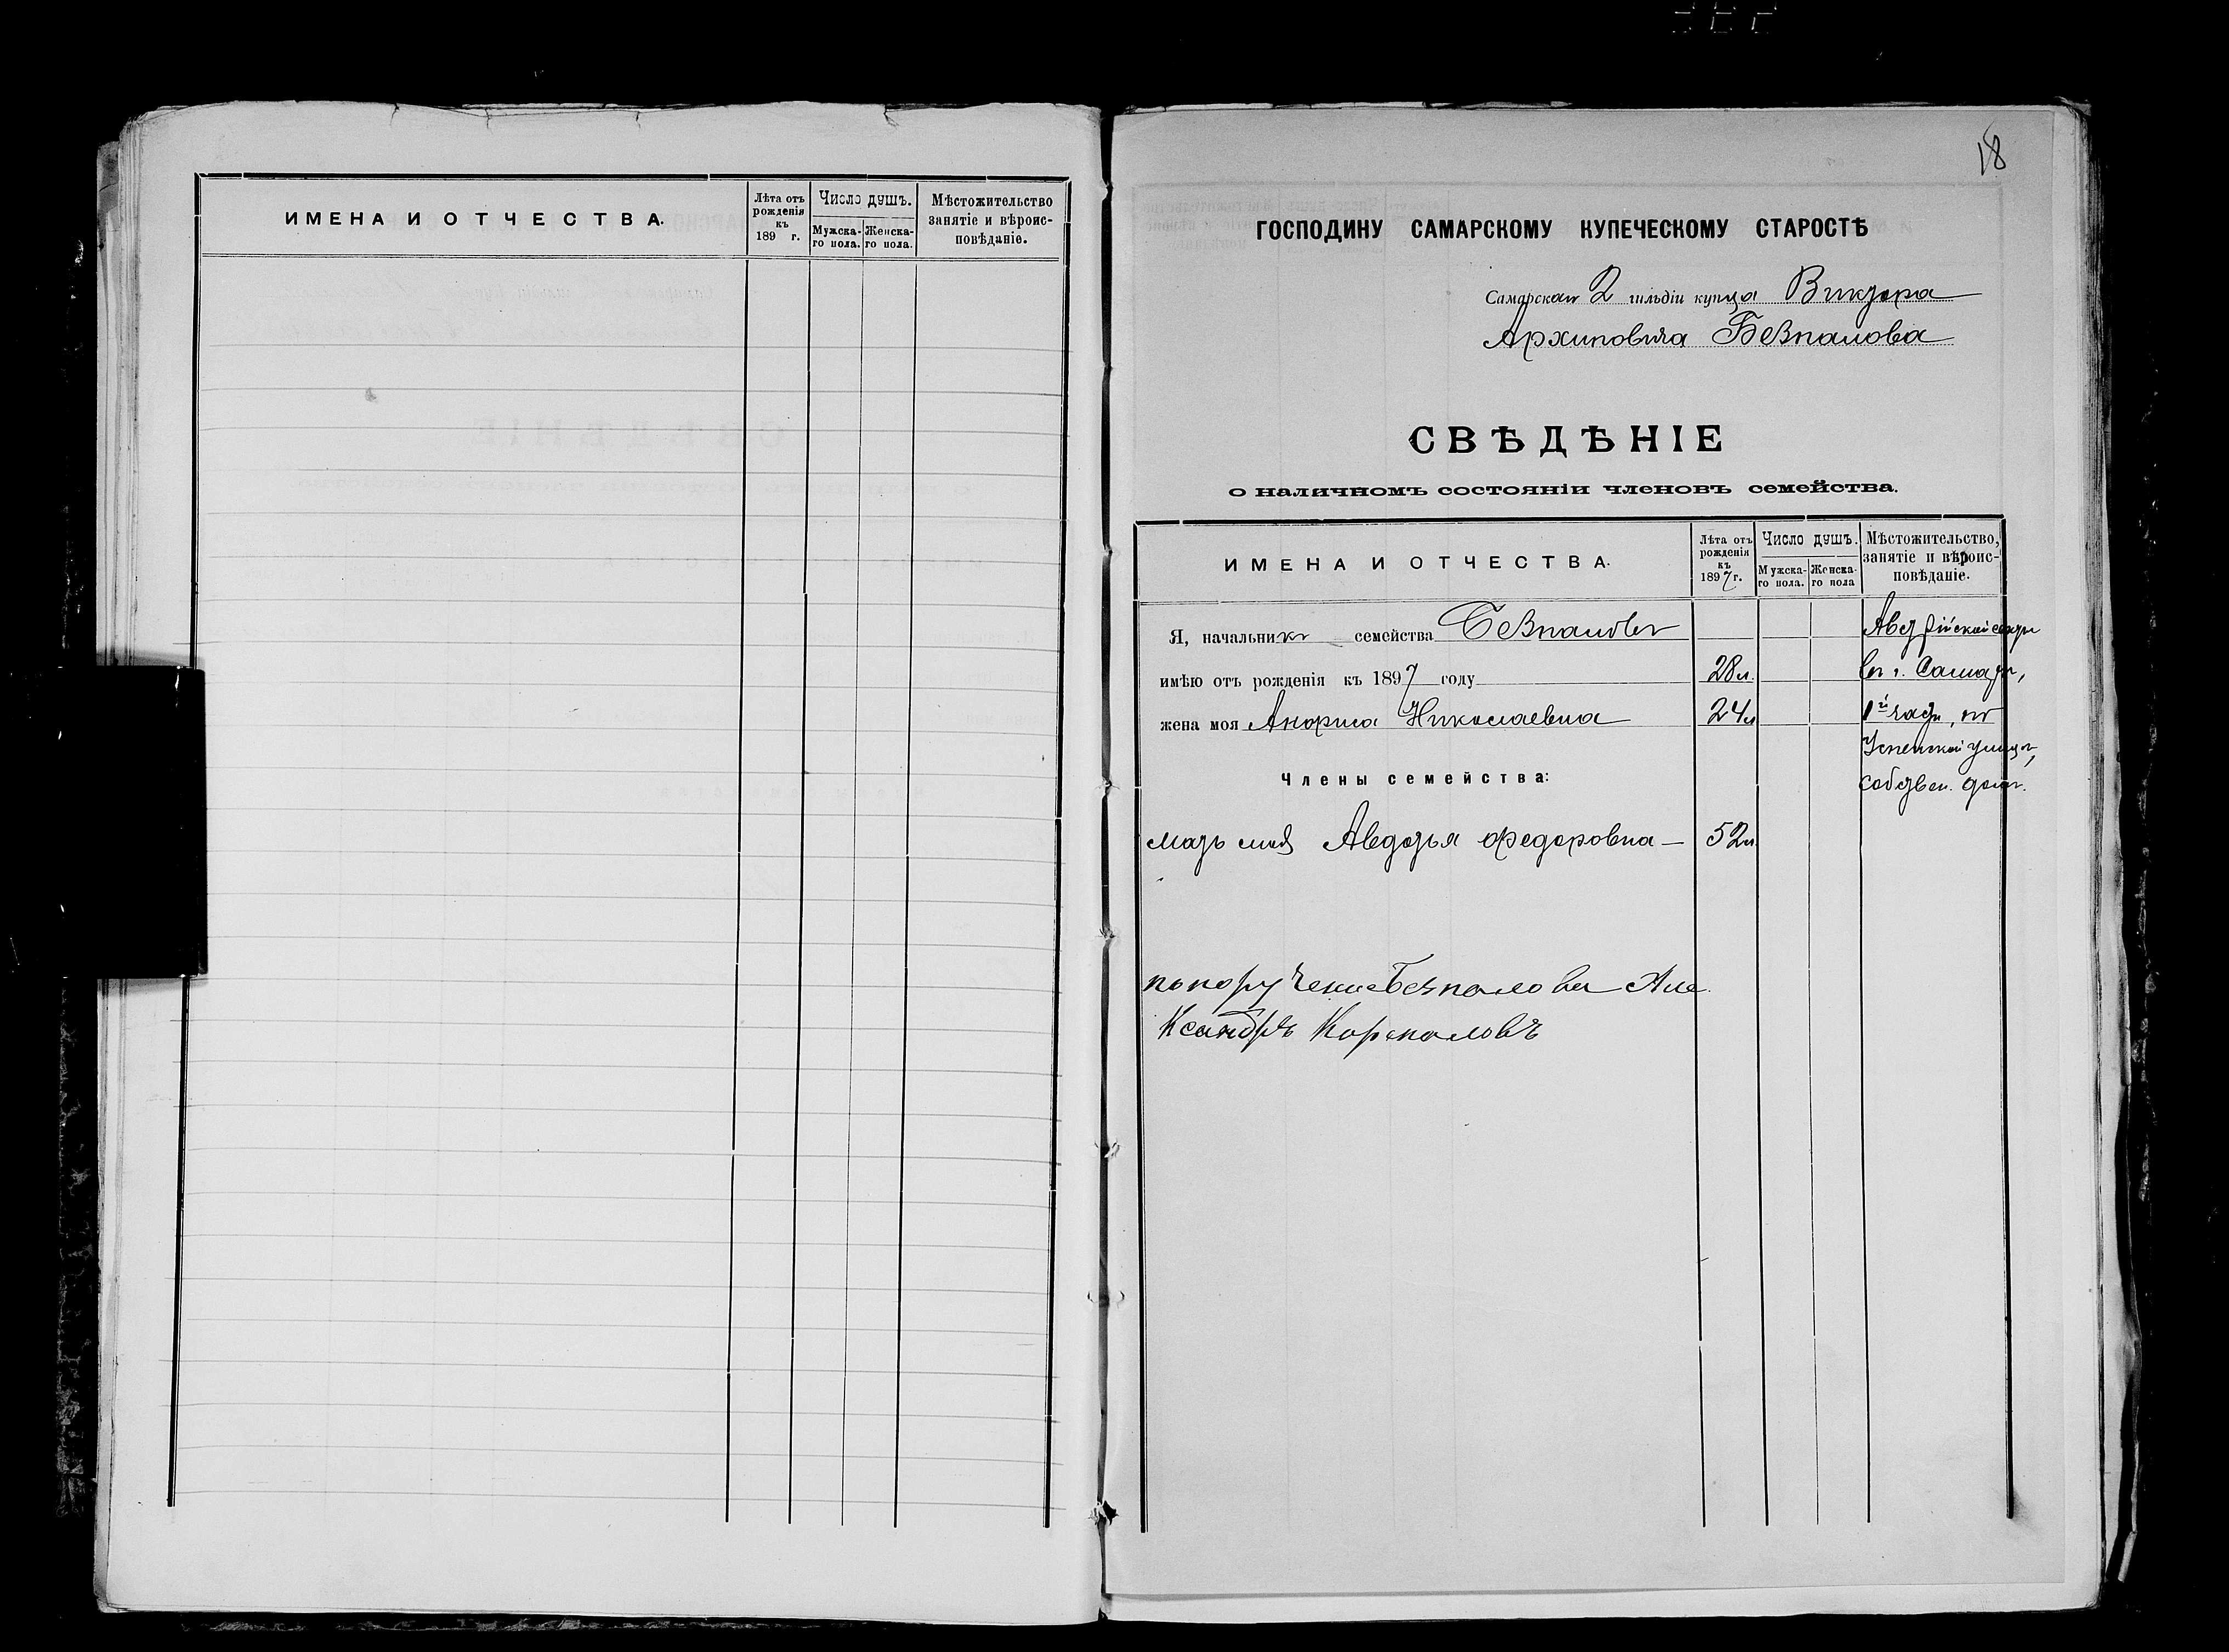 ИМЕНА И ОТЧЕСТВА.
Лѣта отъ рожденія къ 189 г.
Число душъ.
Мужска-го пола.
Женска-го пола.
Мѣстожительство занятіе и вѣроис-повѣданіе.
18
ГОСПОДИНУ САМАРСКОМУ КУПЕЧЕСКОМУ СТАРОСТѢ
Самарскаго 2 гильдіи купца Виктора
Архиповича Безпалова
СВѢДѢНІЕ
о наличномъ состояніи членовъ семейства.
ИМЕНА И ОТЧЕСТВА.
Лѣта отъ рожденія къ 1897 г.
Число душъ.
Мужска-го пола.
Женска-го пола
Мѣстожительство, занятіе и вѣроис-повѣданіе.
Я, начальникъ семейства Безпаловъ
имѣю отъ рожденія къ 1897 году 28 л.
въ г. Самарѣ,
жена моя Николаевна 24 л
1й части, по
Успенской улицѣ,
Члены семейства:
собствен. домъ.
мать моя Авдотья Федоровна — 52 л
по порученію Безпалова Але
ксандръ